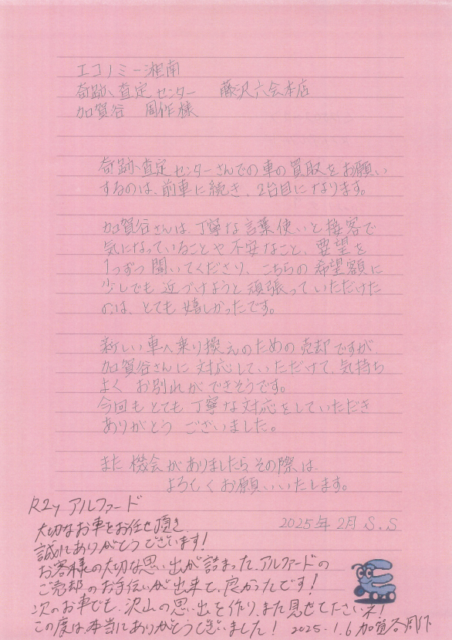 エコノミー湘南
奇跡、査定センター 藤沢六会本店
加賀谷 周作様
奇跡、査定センターさんでの車の買取をお願い
するのは、前車に続き、2台目になります。
加賀谷さんは、丁寧な言葉使いと接客で
気になっていることや不安なこと、要望を
1つずつ聞いてくださり、こちらの希望額に
少しでも近づけようと頑張っていただけた
のは、とても嬉しかったです。
新しい車へ乗り換えのための売却ですが
加賀谷さんに対応していただけて、気持ち
よくお別れができそうです。
今回もとても丁寧な対応をしていただき
ありがとうございました。
また機会がありましたらその際は
よろしくお願いいたします。
2025年2月 S.S
R2y アルファード
大切なお車をお任せ頂き
誠にありがとうございます!
お客様の大切な思い出が詰まった、アルファードの
ご売却のお手伝いが出来て、良かったです!
次のお車でも、沢山の思い出を作り、また見せてくださいネ!
この度は本当にありがとうございました! 2025.1.6 加賀谷